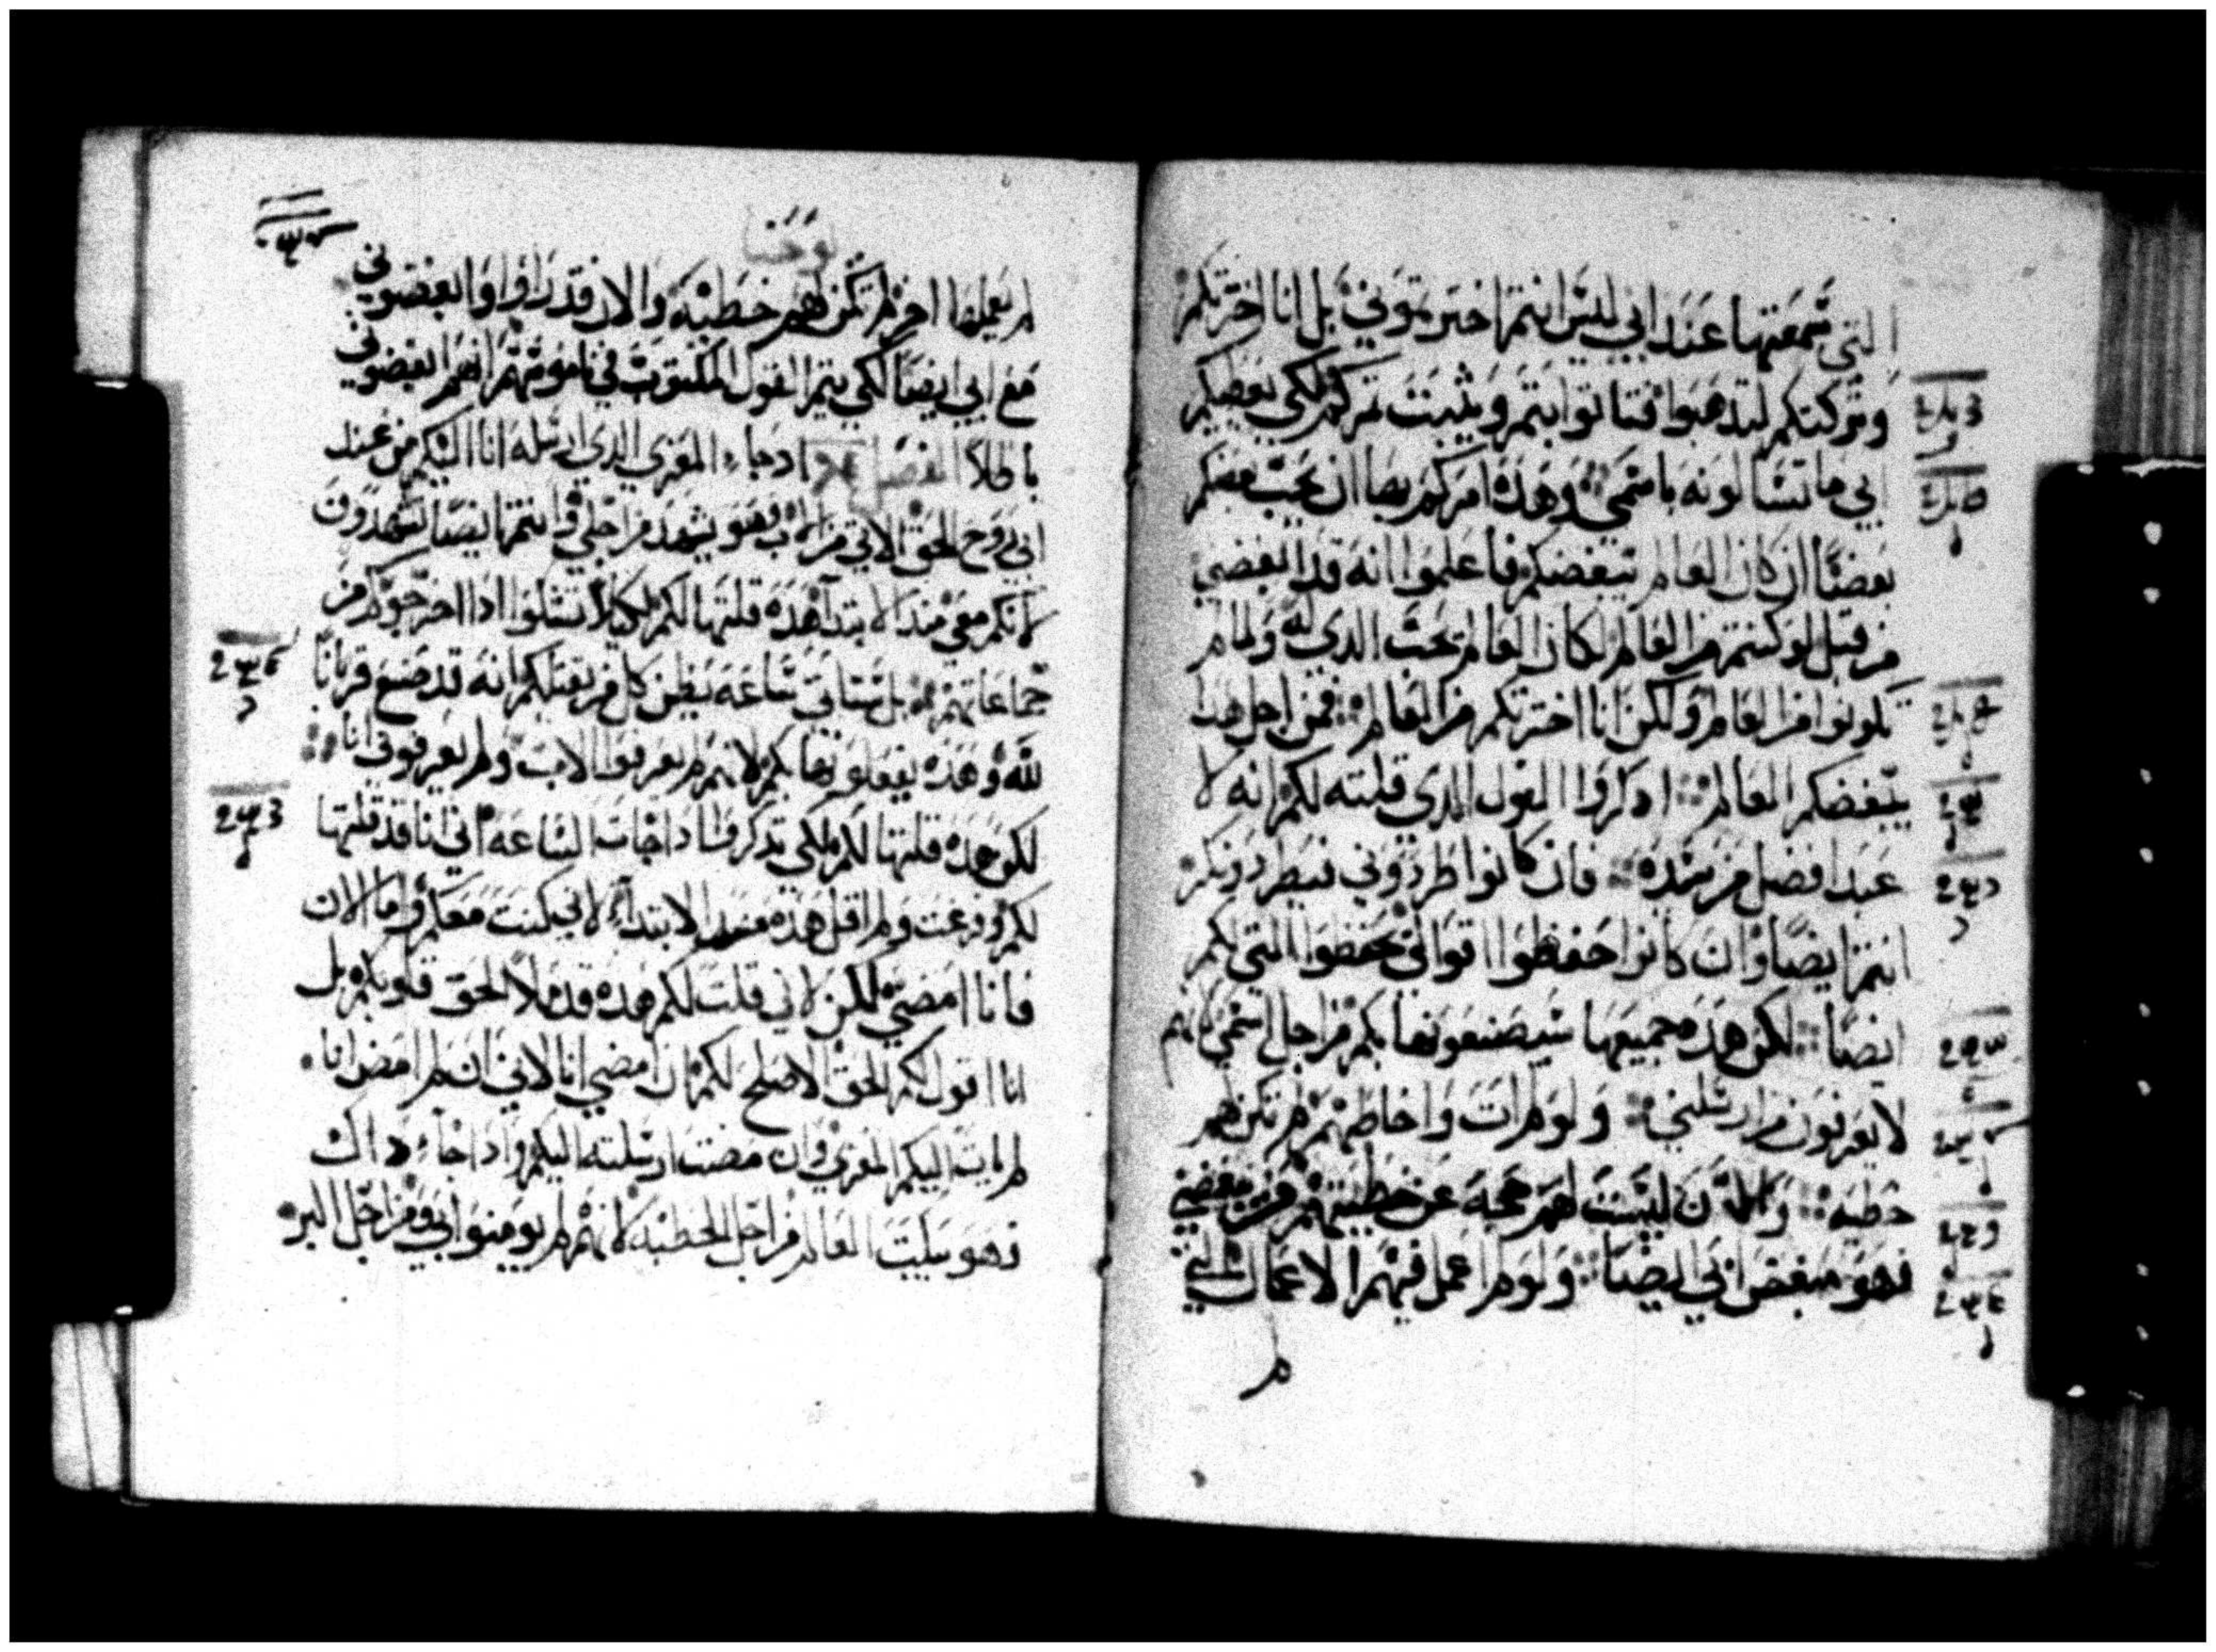 التي سمعتها عند ابي ليس انتم اخترتموني بل انا اخترتكم
وتركتكم لتدهبوا فتاتوا بتمر ويثبت تمركم لكي يعطيكم
ابي ما تسالونه باسمي وهده امركم بها ان يحب بعضكم
بعضًا ان كان العالم يبغضكم فاعلموا انه قد ابغضني
من قبل لو كنتم من العالم لكان العالم يحب الدي له ولما لم
تكونوا من العالم ولكن انا اخترتكم من العالم فمن اجل هدا
يبغضكم العالم ادكروا القول الدي قلته لكم انه لا
عبد افضل من سيده فان كانوا طردوني فيطردونكم
انتم ايضًا وان كانوا حفظوا اقوالي يحفظوا التي لكم
ايضًا لكن هده جميعها سيصنعونها بكم من اجل اسمي لانهم
لا يعرفون من ارسلني ولو لم ات واخاطبهم لم تكن لهم
خطيه والان ليست لهم حجه عن خطيتهم من يبغضني
فهو مبغض ابي ايضًا ولو لم اعمل فيهم الاعمال التي
لم
يوحنا
لم يعملها اخر لم تكن لهم خطيه والان قد راوا وابغضوني
مع ابي ايضًا لكي يتم القول المكتوب في ناموسهم انهم ابغضوني
باطلاً الفصل ادجاء المعزي الدي ارسله انا اليكم من عند
ابي روح الحق الاتي من الاب فهو يشهد من اجلي وانتم ايضا تشهدون
لانكم معي مند الابتدا هده قلتها لكم لكيلا تشكوا ادا اخرجوكم من
جماعاتهم بل ستاتي ساعه يظن كل من يقتلكم انه قد صنع قربانًا
لله وهده يفعلونها بكم لانهم لم يعرفوا الاب ولم يعرفوني انا
لكن هده قلتها لكم لكي تدكروا ادا جات الساعه اني انا قد قلتها
لكم ولم اقل هده مند الابتداء لاني كنت معكم واما الان
فانا امضي لكن لاني قلت لكم هده قد ملا الحق قلوبكم بل
انا اقول لكم الحق الاصلح لكم ان امضي انا لاني ان لم امض انا
لم يات اليكم المعزي وان مضيت ارسلته اليكم وادا جاء داك
فهو يبكت العالم من اجل الخطيه لانهم لم يومنوا بي ومن اجل البر